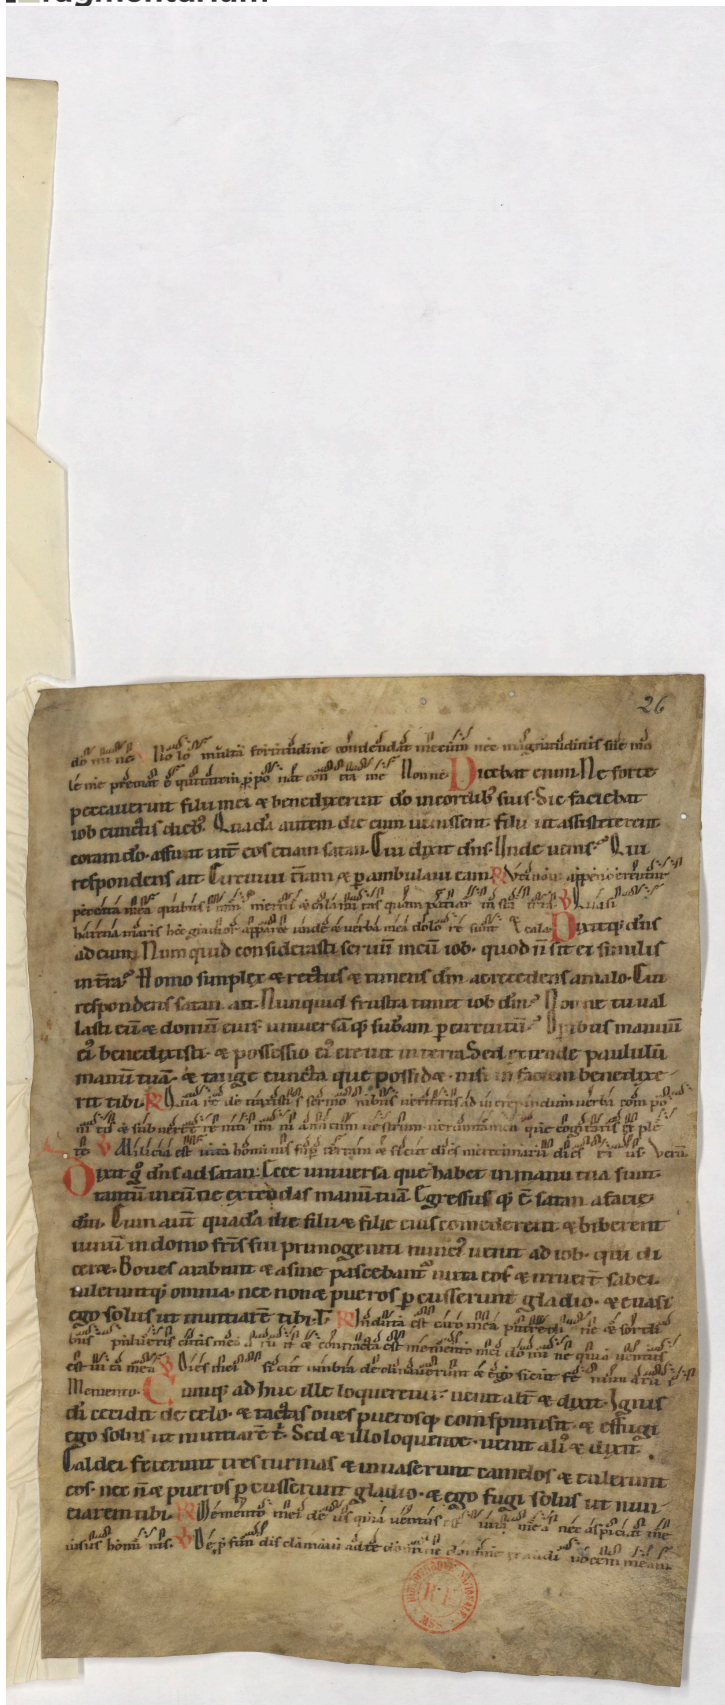 Fragmentarium
26
do mi ne Nolo multa fortitudine contendat mecum nec magnitudinis sue mo
le me premat
Nonne Dicebat enim. Ne forte
peccauerunt filii mei & benedixerunt do in cordib suis. Sic faciebat
iob cunctis dieb. Quada autem die cum uenissent filii ut assisterent
coram do. affuit int eos etiam satan. Cui dixit dns. Unde uenis? Qui
respondens ait. Circuiui tram & p ambulaui eam. R Utinam appenderentur
peccata mea quibus iram merui & calamitas quam patior in sta te ra V Quasi
harena maris hec grauior appare unde & uerba mea dolo re sunt & cala Dixitq dns
ad eum. Numquid considerasti seruu meu iob. quod n sit ei similis
in tra? Homo simplex & rectus & timens dm ac recedens a malo. Cui
respondens satan. ait. Nunquid frustra timet iob dm? Nonne tu ual
lasti eu & domu eius. uniuersaq subam p circuitu? Opibus manuu
ei benedixisti. & possessio ei creuit in terra. Sed extende paululu
manu tua. & tange cuncta que possid&. nisi in faciem benedixe
rit tibi. R Qua re de traxisti s sermo nibus ueritatis ad increpandum uerba com po
ni tis & subuertere niti mi ni amicum uestrum uerumtamen que cogitastis ex ple
te V Militia est uita hominis sup terram & sicut dies mercennarii dies e i us. Veru
Dixit g dns ad satan: Ecce uniuersa que habet in manu tua sunt.
tantu in eu ne extendas manu tua. Egressus q e satan a facie
dni. Cum aut quada die filii & filie eius comederent & biberent
uinu in domo fris sui primogeniti nunci uenit ad iob. qui di
cer&. Boues arabant & asine pascebant iuxta eos & irruer sabei.
tuleruntq omnia. nec non & pueros p cusserunt gladio. & euasi
ego solus ut nuntiare tibi. R Induta est caro mea putredi ne & sordi
bus pulueris cutis mea a ru it & contracta est memento mei do mi ne quia uentus
est ui ta mea V Dies mei sicut umbra declinauerunt & ego sicut fe num aru i
Memento. Cumq ad huc ille loqueretur. uenit ali & dixit. Ignis
di cecidit de celo. & tactas oues puerosq comsumpsit. & effugi
ego solus ut nuntiare t. Sed & illo loquente. uenit ali & dixit.
Caldei fecerunt tres turmas & inuaserunt camelos & tulerunt
eos. nec n & pueros p cusserunt gladio. & ego fugi solus ut nun
ciarem tibi. R Memento mei de us quia uentus est uita mea nec aspiciat me
uisus homi nis. V De p fun dis clamaui ad te domine domine exaudi uocem meam